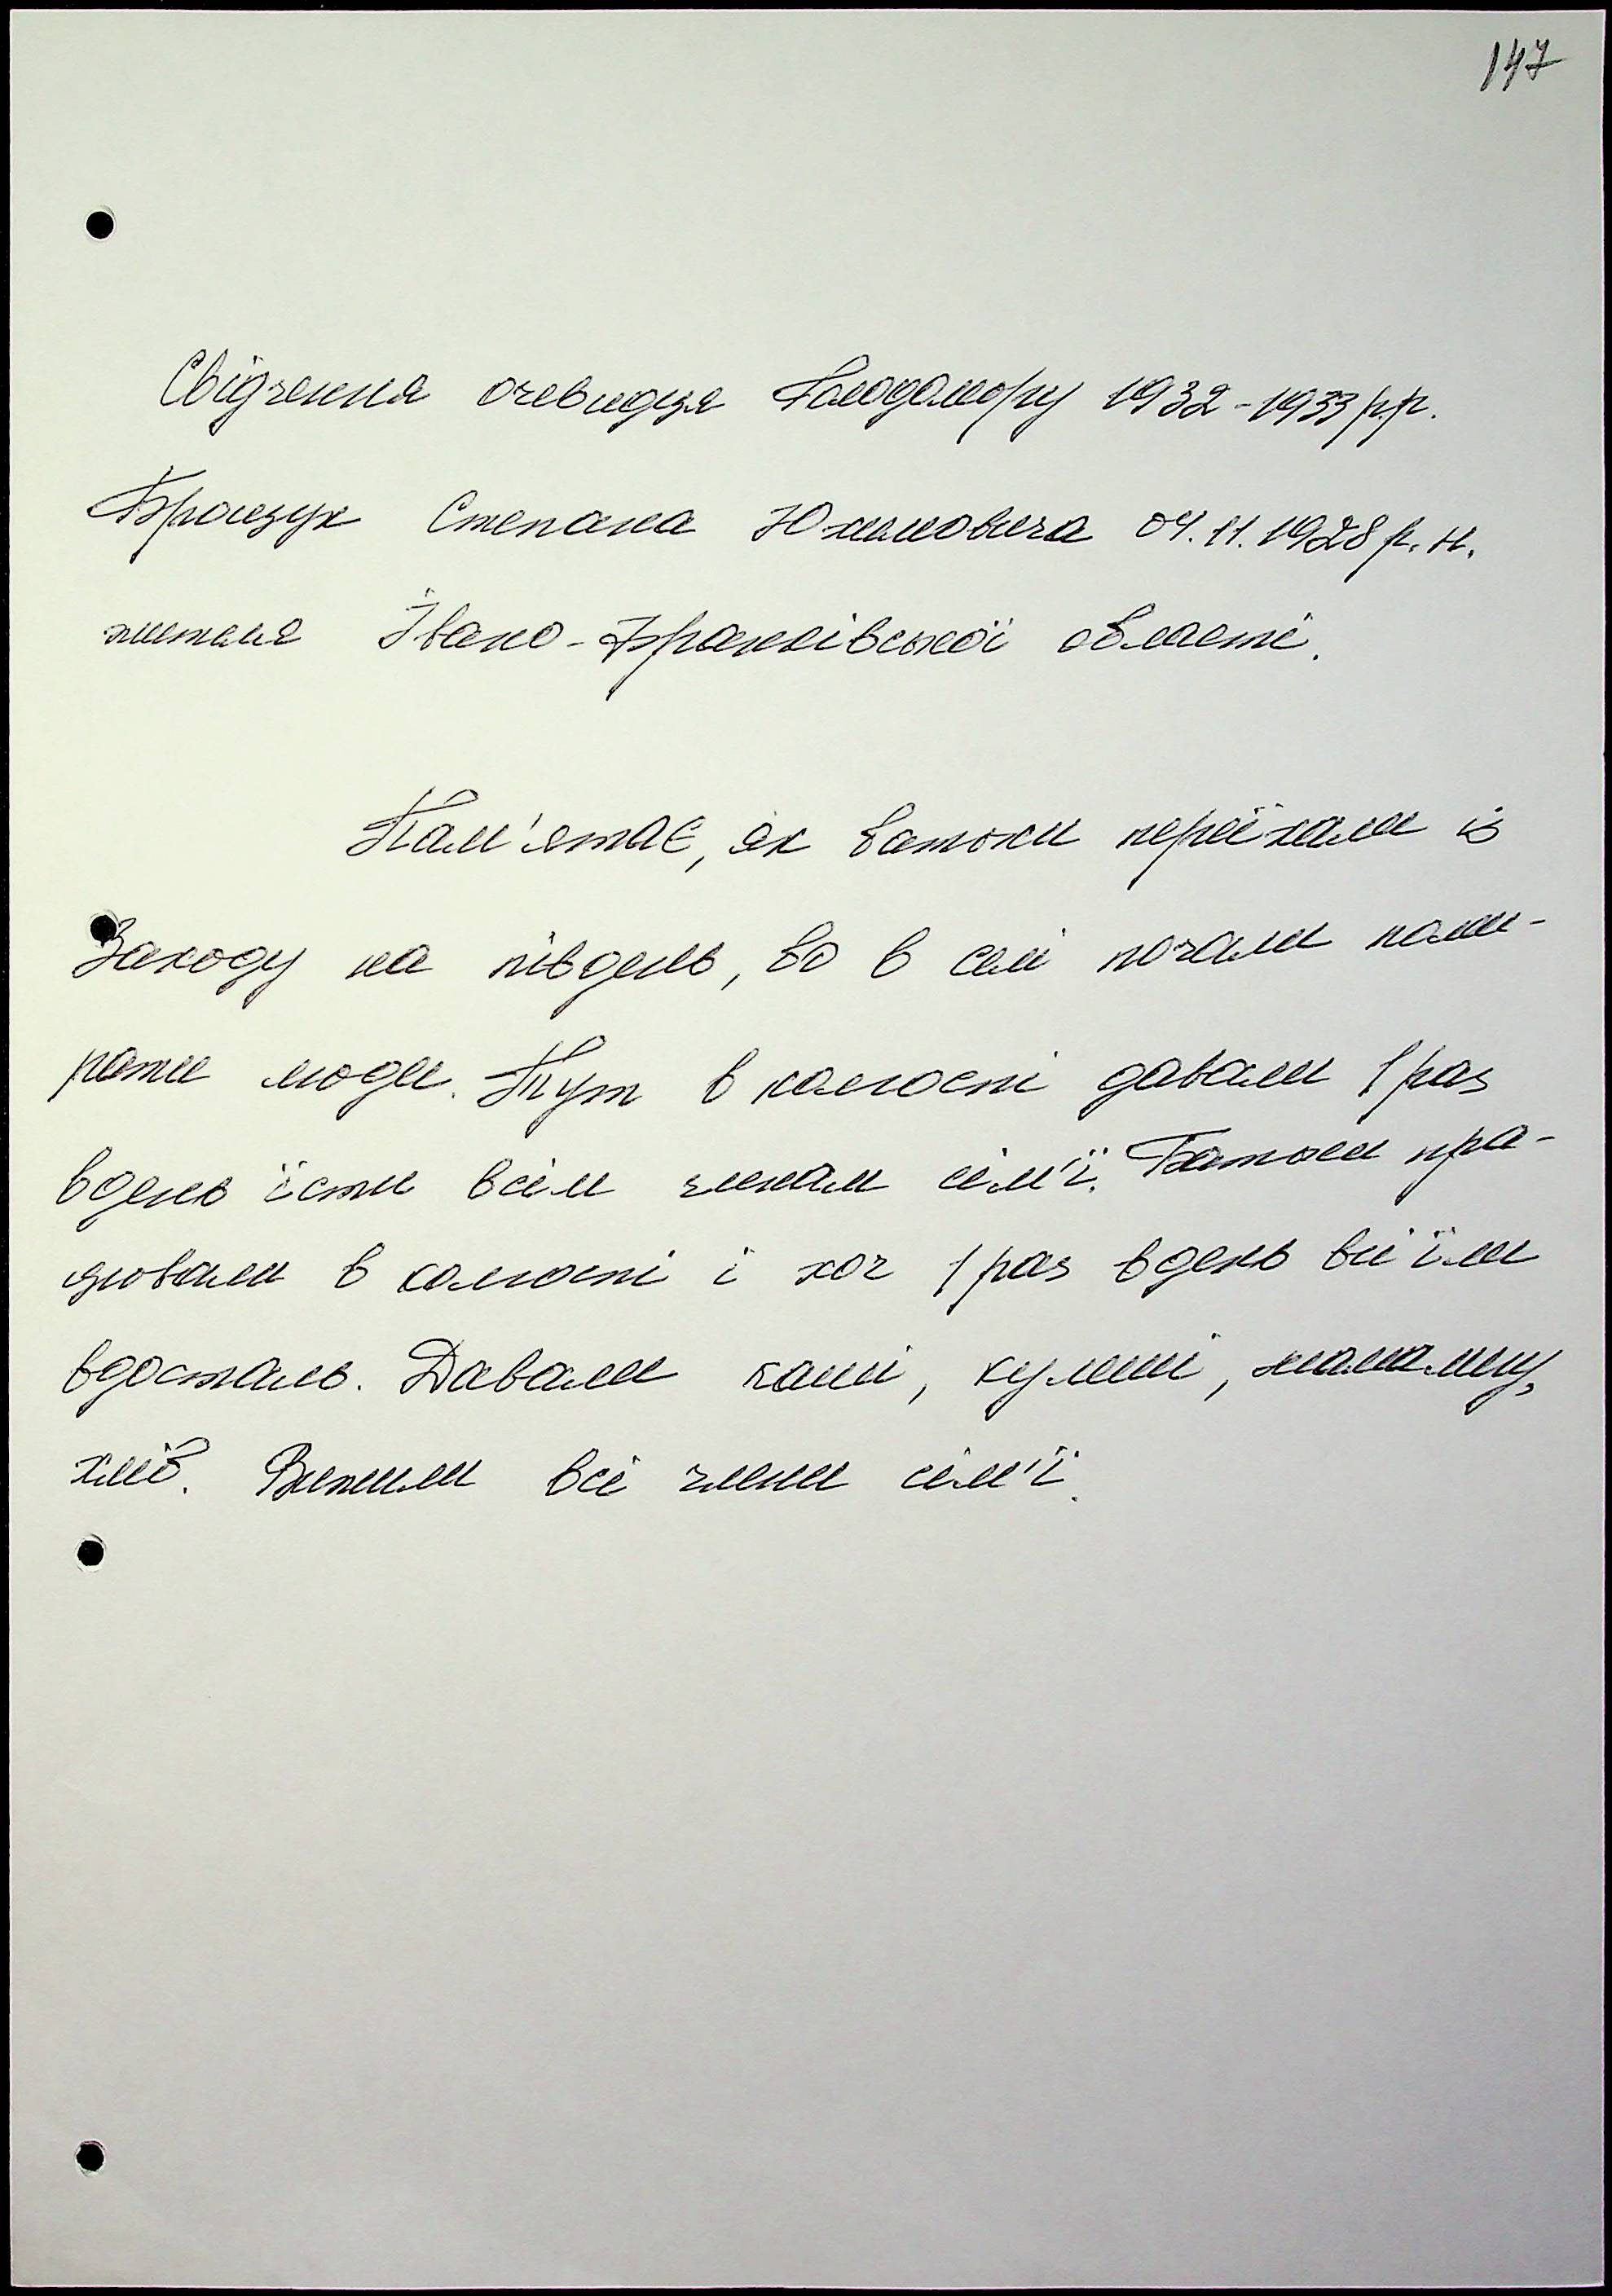 147
Свідчення очевидця Голодомору 1932-1933 р.р.
Степана Юхимовича 04.11.1928 р.н.
жителя Івано-Франківської області.
Пам'ятає, як батьки переїхали із
Заходу на південь, бо в селі почали поми-
рати люди. Тут в колгоспі давали 1 раз
вдень їсти всім членам сім'ї. Батьки пра-
цювали в колгоспі і хоч 1 раз вдень всі їли
вдосталь. Давали каші, куліші, мамалигу,
хліб. Вижили всі члени сім'ї.